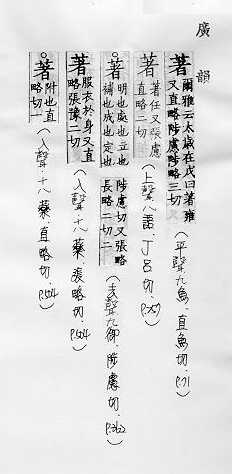 廣韻
著 爾雅云太歲在戊曰著雍
又直略陟慮陟略三切
(平聲九魚．直魚切．P.71)
著 著任又張慮
直略二切
(上聲八語．丁呂切．P.257)
著 明也處也立也
補也成也定也
陟慮切又張略
長略二切二
(去聲九御．陟慮切．P.362)
著 服衣於身又直
略張豫二切
(入聲十八藥．張略切．P.504)
○著 附也直
略切一
(入聲十八藥．直略切．P.504)